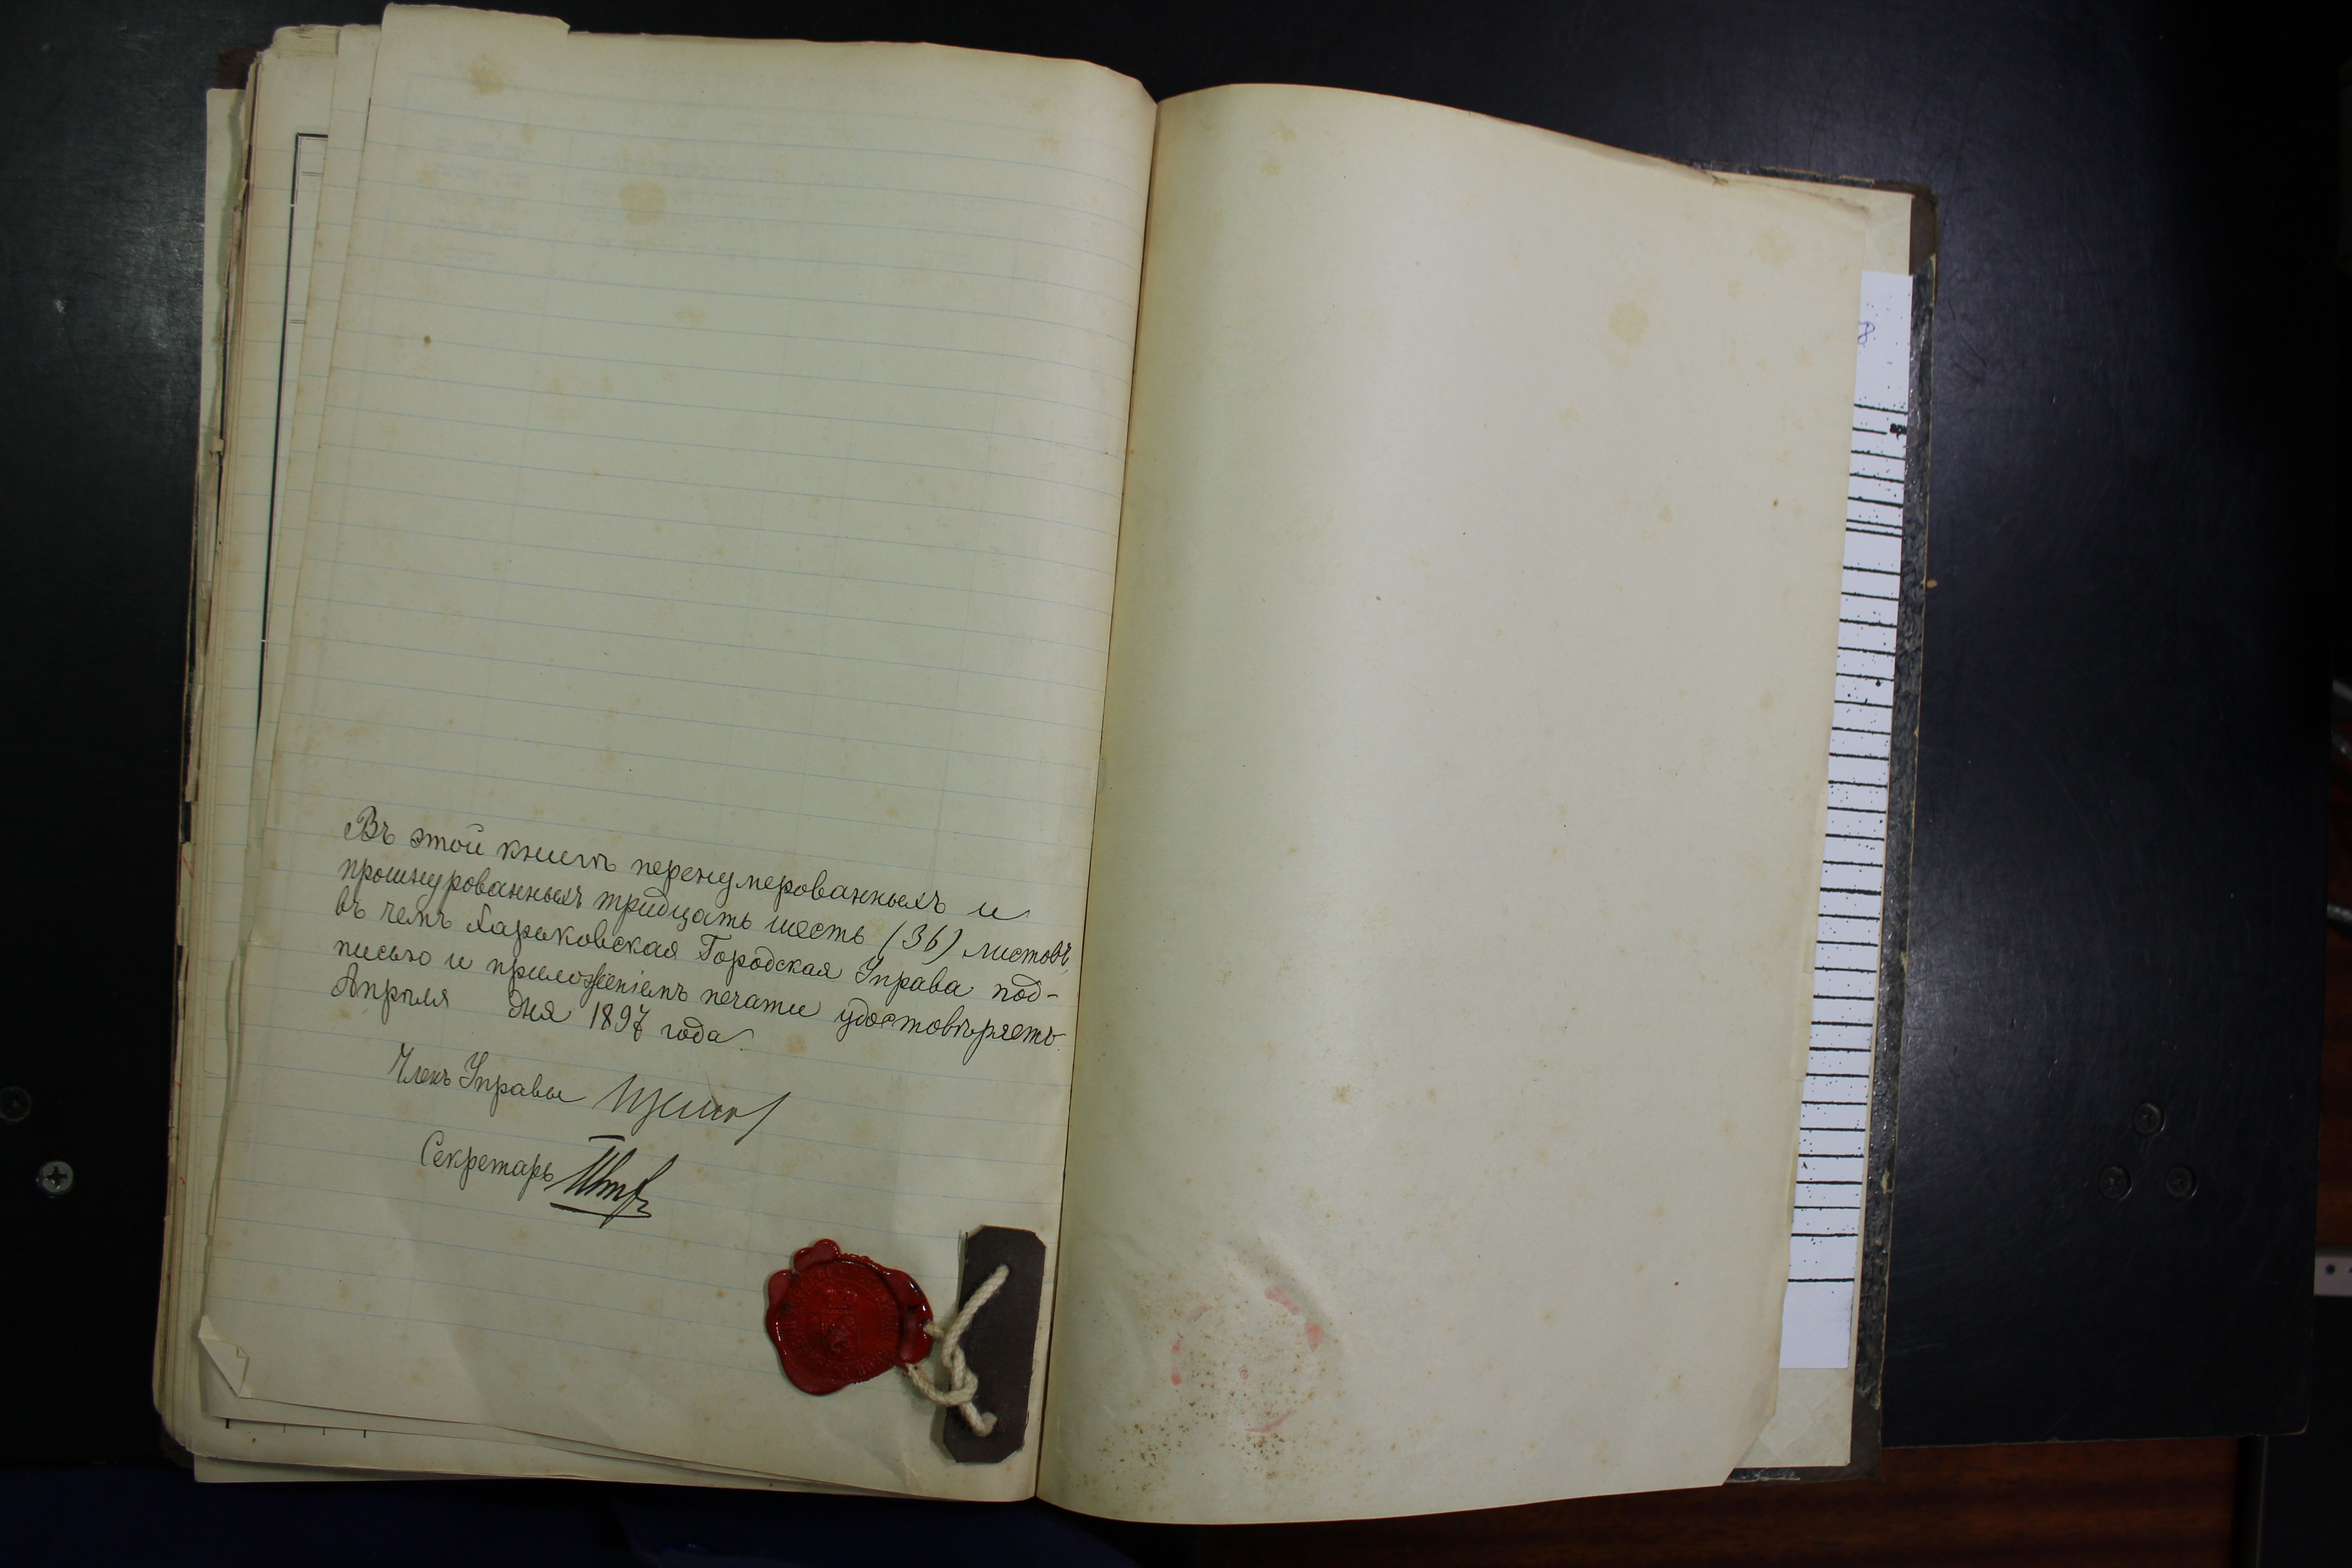 Въ этой книгѣ перенумерованныхъ и
прошнурованныхъ тридцать шесть (36) листовъ,
въ чемъ Харьковская Городская Управа под-
писью и приложеніемъ печати удостовѣряетъ.
Апрѣля дня 1897 года.
Членъ Управы
Секретарь
8